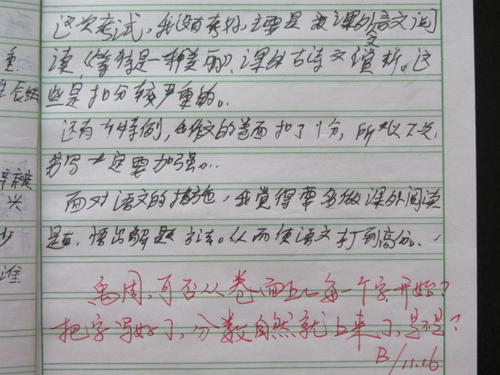 这次考试，我没有考好，主要是 课外语文阅
读《等待是一种美丽》，课外古诗文赏析。这
些是扣分较严重的。
还有 特例，作文的卷面扣了1分，所以下次
书写一定要加强。
面对语文的措施，我觉得要多做课外阅读
题，悟出解题方法。从而使语文打到高分。
重
辩
兴
少
谁
禹周，可否从卷面上每一个字开始？
把字写好了，分数自然就上来了，是不是？
B/11.16